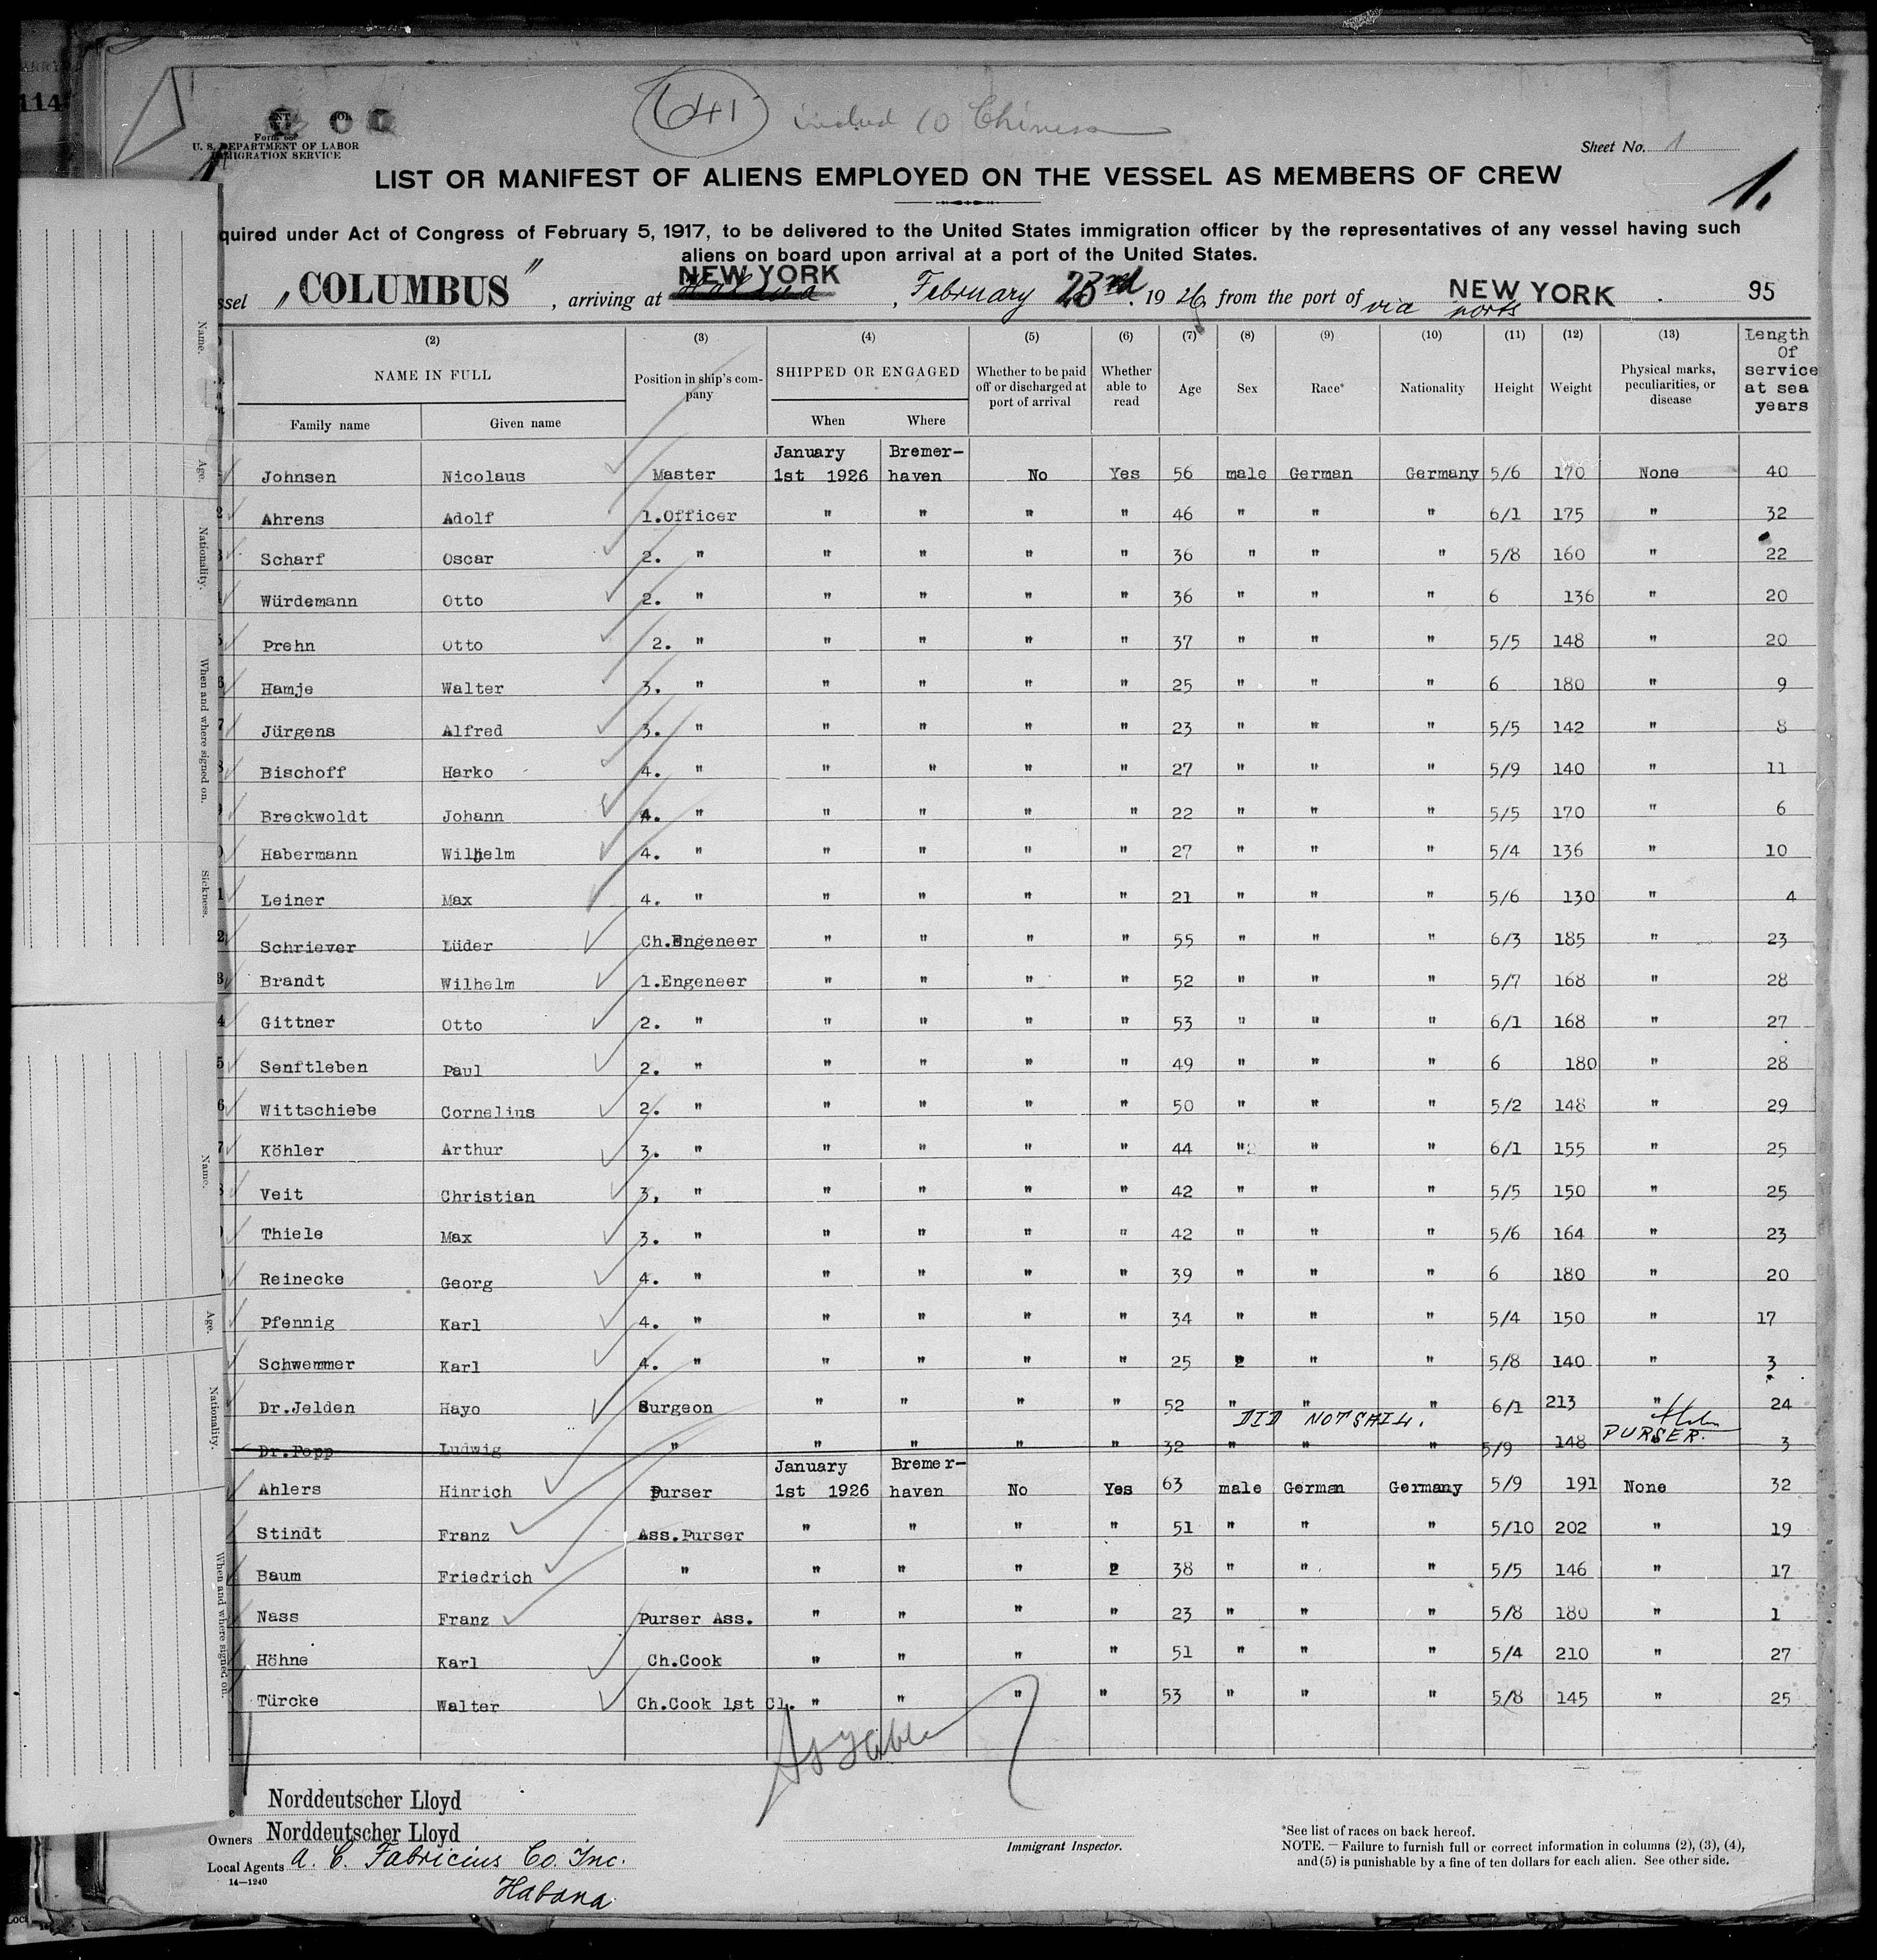 114
641 includ 10 Chinese
U. S. DEPARTMENT OF LABOR
IMMIGRATION SERVICE
Sheet No. 1
LIST OR MANIFEST OF ALIENS EMPLOYED ON THE VESSEL AS MEMBERS OF CREW
1.
quired under Act of Congress of February 5, 1917, to be delivered to the United States immigration officer by the representatives of any vessel having such
aliens on board upon arrival at a port of the United States.
ssel "COLUMBUS", arriving at NEW YORK Habana, February 23rd. 1926, from the port of via ports NEW YORK. 95
(2) (3) (4) (5) (6) (7) (8) (9) (10) (11) (12) (13) Length Of service at sea years
NAME IN FULL Position in ship's company SHIPPED OR ENGAGED Whether to be paid off or discharged at port of arrival Whether able to read Age Sex Race* Nationality Height Weight Physical marks, peculiarities, or disease
Family name Given name When Where
January Bremer-
Johnsen Nicolaus Master 1st 1926 haven No Yes 56 male German Germany 5/6 170 None 40
Ahrens Adolf 1.Officer " " " " 46 " " " 6/1 175 " 32
Scharf Oscar 2. " " " " " 36 " " " 5/8 160 " 22
Würdemann Otto 2. " " " " " 36 " " " 6 136 " 20
Prehn Otto 2. " " " " " 37 " " " 5/5 148 " 20
Hamje Walter 3. " " " " " 25 " " " 6 180 " 9
Jürgens Alfred 3. " " " " " 23 " " " 5/5 142 " 8
Bischoff Harko 4. " " " " " 27 " " " 5/9 140 " 11
Breckwoldt Johann 4. " " " " " 22 " " " 5/5 170 " 6
Habermann Wilhelm 4. " " " " " 27 " " " 5/4 136 " 10
Leiner Max 4. " " " " " 21 " " " 5/6 130 " 4
Schriever Lüder Ch.Engeneer " " " " 55 " " " 6/3 185 " 23
Brandt Wilhelm 1.Engeneer " " " " 52 " " " 5/7 168 " 28
Gittner Otto 2. " " " " " 53 " " " 6/1 168 " 27
Senftleben Paul 2. " " " " " 49 " " " 6 180 " 28
Wittschiebe Cornelius 2. " " " " " 50 " " " 5/2 148 " 29
Köhler Arthur 3. " " " " " 44 " " " 6/1 155 " 25
Veit Christian 3, " " " " " 42 " " " 5/5 150 " 25
Thiele Max 3. " " " " " 42 " " " 5/6 164 " 23
Reinecke Georg 4. " " " " " 39 " " " 6 180 " 20
Pfennig Karl 4. " " " " " 34 " " " 5/4 150 " 17
Schwemmer Karl 4. " " " " " 25 " " " 5/8 140 " 3
Dr.Jelden Hayo Surgeon " " " " 52 " " " 6/1 213 " 24
DID NOT SAIL.
Dr.Popp Ludwig " " " " " 32 " " " 5/9 148 PURSER. 3
January Bremer-
Ahlers Hinrich Purser 1st 1926 haven No Yes 63 male German Germany 5/9 191 None 32
Stindt Franz Ass.Purser " " " " 51 " " " 5/10 202 " 19
Baum Friedrich " " " " " 38 " " " 5/5 146 " 17
Nass Franz Purser Ass. " " " " 23 " " " 5/8 180 " 1
Höhne Karl Ch.Cook " " " " 51 " " " 5/4 210 " 27
Türcke Walter Ch.Cook 1st Cl. " " " " 53 " " " 5/8 145 " 25
Norddeutscher Lloyd
Owners Norddeutscher Lloyd
Local Agents A. C. Fabricius Co. Inc.
Habana
14—1240
Immigrant Inspector.
*See list of races on back hereof.
NOTE. — Failure to furnish full or correct information in columns (2), (3), (4),
and (5) is punishable by a fine of ten dollars for each alien. See other side.
Name.
Age.
Nationality.
When and where signed on.
Sickness.
Name.
Age.
Nationality.
When and where signed on.